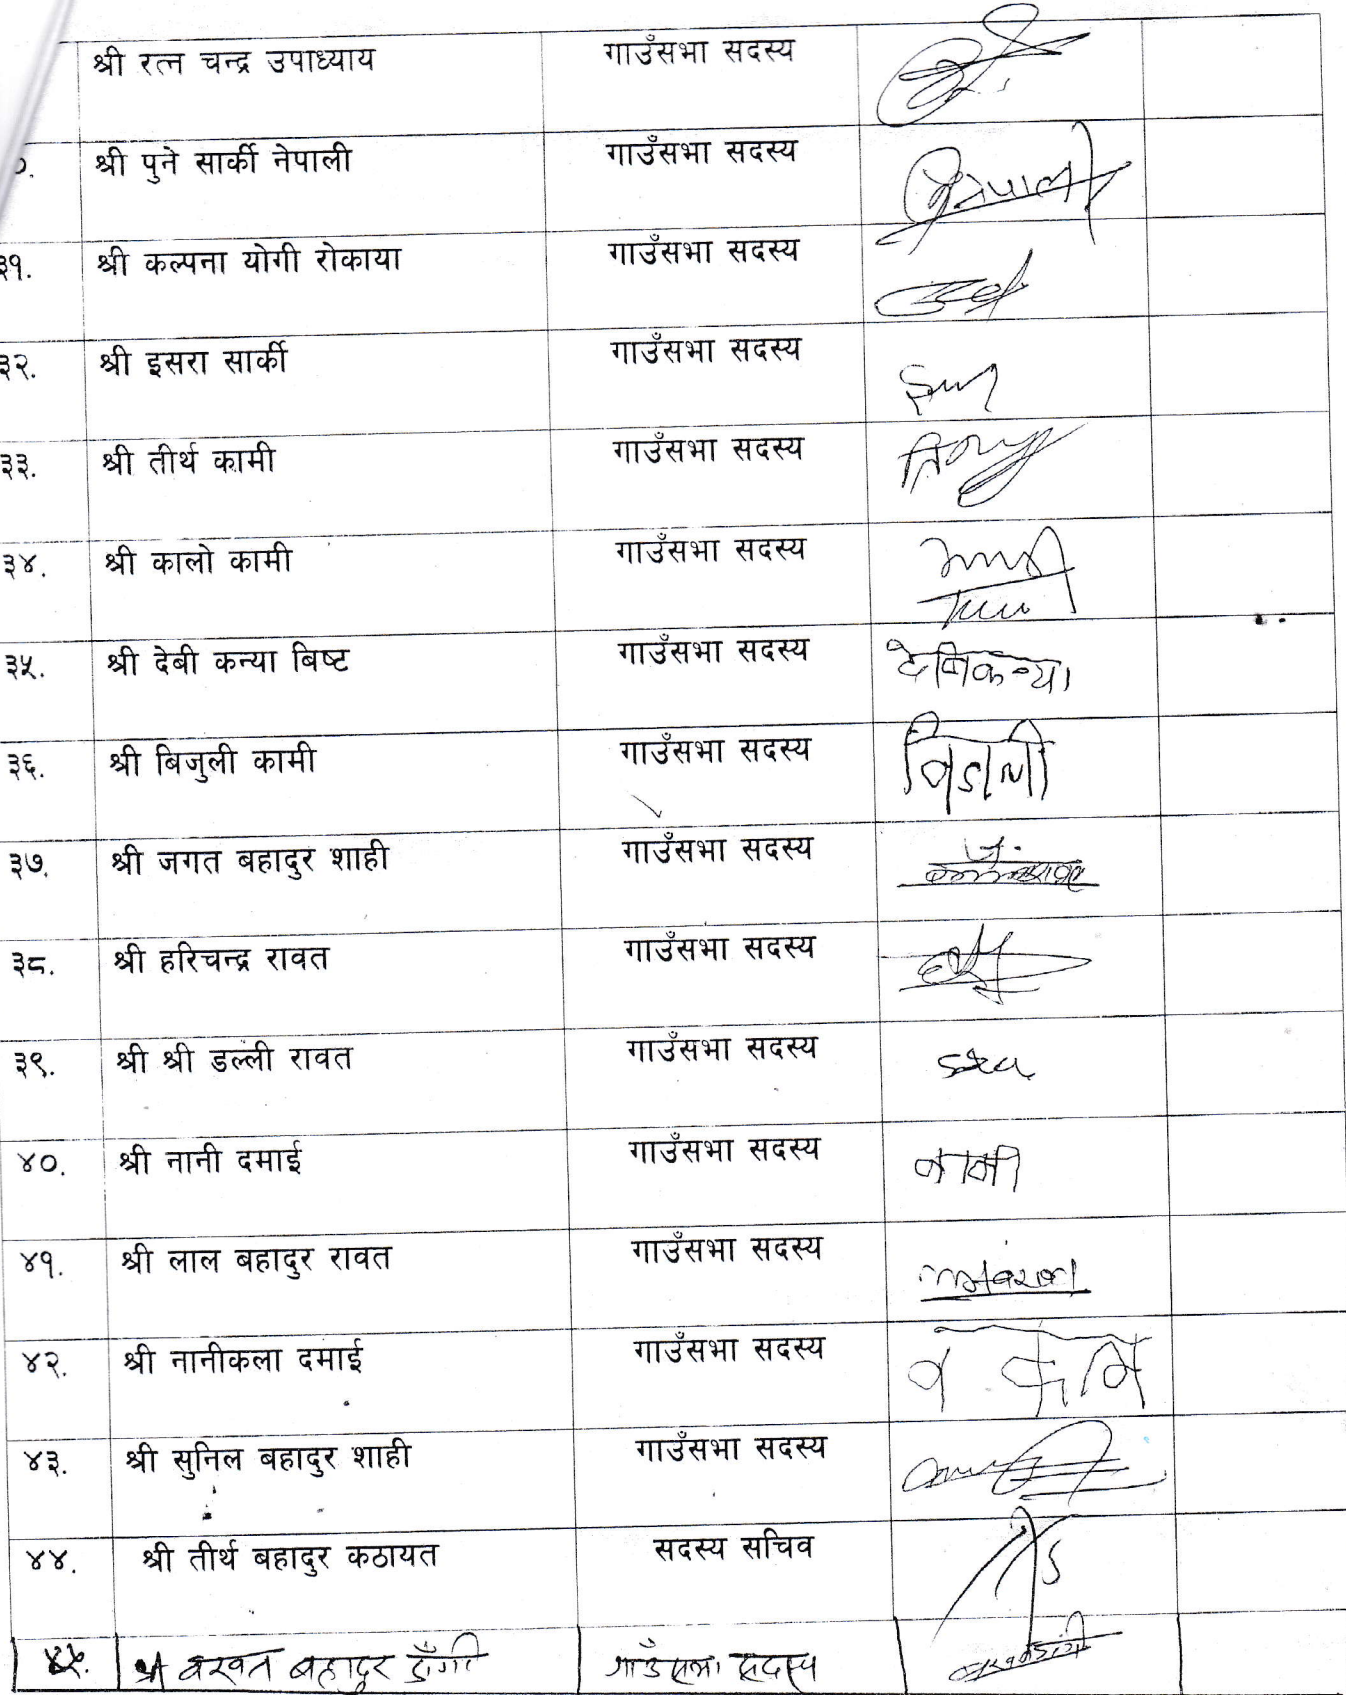 श्री रत्न चन्द्र उपाध्याय गाउँसभा सदस्य
०. श्री पुने सार्की नेपाली गाउँसभा सदस्य
३१. श्री कल्पना योगी रोकाया गाउँसभा सदस्य
३२. श्री इसरा सार्की गाउँसभा सदस्य
३३. श्री तीर्थ कामी गाउँसभा सदस्य
३४. श्री कालो कामी गाउँसभा सदस्य
३५. श्री देबी कन्या बिष्ट गाउँसभा सदस्य
३६. श्री बिजुली कामी गाउँसभा सदस्य
३७. श्री जगत बहादुर शाही गाउँसभा सदस्य
३८. श्री हरिचन्द्र रावत गाउँसभा सदस्य
३९. श्री श्री डल्ली रावत गाउँसभा सदस्य
४०. श्री नानी दमाई गाउँसभा सदस्य नानी
४१. श्री लाल बहादुर रावत गाउँसभा सदस्य
४२. श्री नानीकला दमाई गाउँसभा सदस्य
४३. श्री सुनिल बहादुर शाही गाउँसभा सदस्य
४४. श्री तीर्थ बहादुर कठायत सदस्य सचिव
४५. श्री वखत बहादुर डाँगी गाउँसभा सदस्य